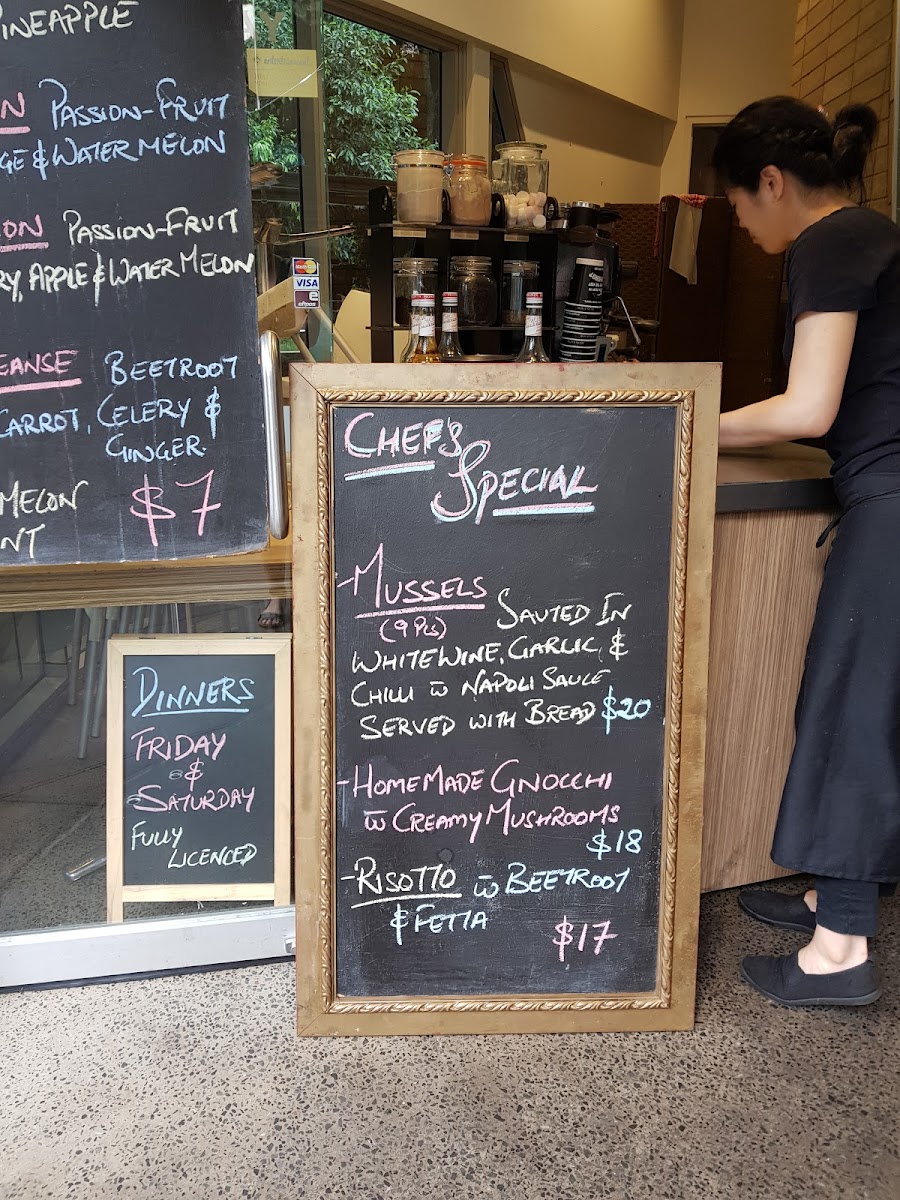 PINEAPPLE
PASSION-FRUIT
& WATERMELON
PASSION-FRUIT
APPLE & WATERMELON
BEETROOT
CARROT, CELERY &
GINGER.
MELON
$7
CHEF'S
SPECIAL
-MUSSELS
(9 PCS) SAUTED IN
WHITE WINE, GARLIC, &
CHILLI w̄ NAPOLI SAUCE
SERVED WITH BREAD $20
-HOMEMADE GNOCCHI
w̄ CREAMY MUSHROOMS
$18
-RISOTTO w̄ BEETROOT
& FETTA
$17
DINNERS
FRIDAY
&
SATURDAY
FULLY
LICENCED
MasterCard
VISA
eftpos